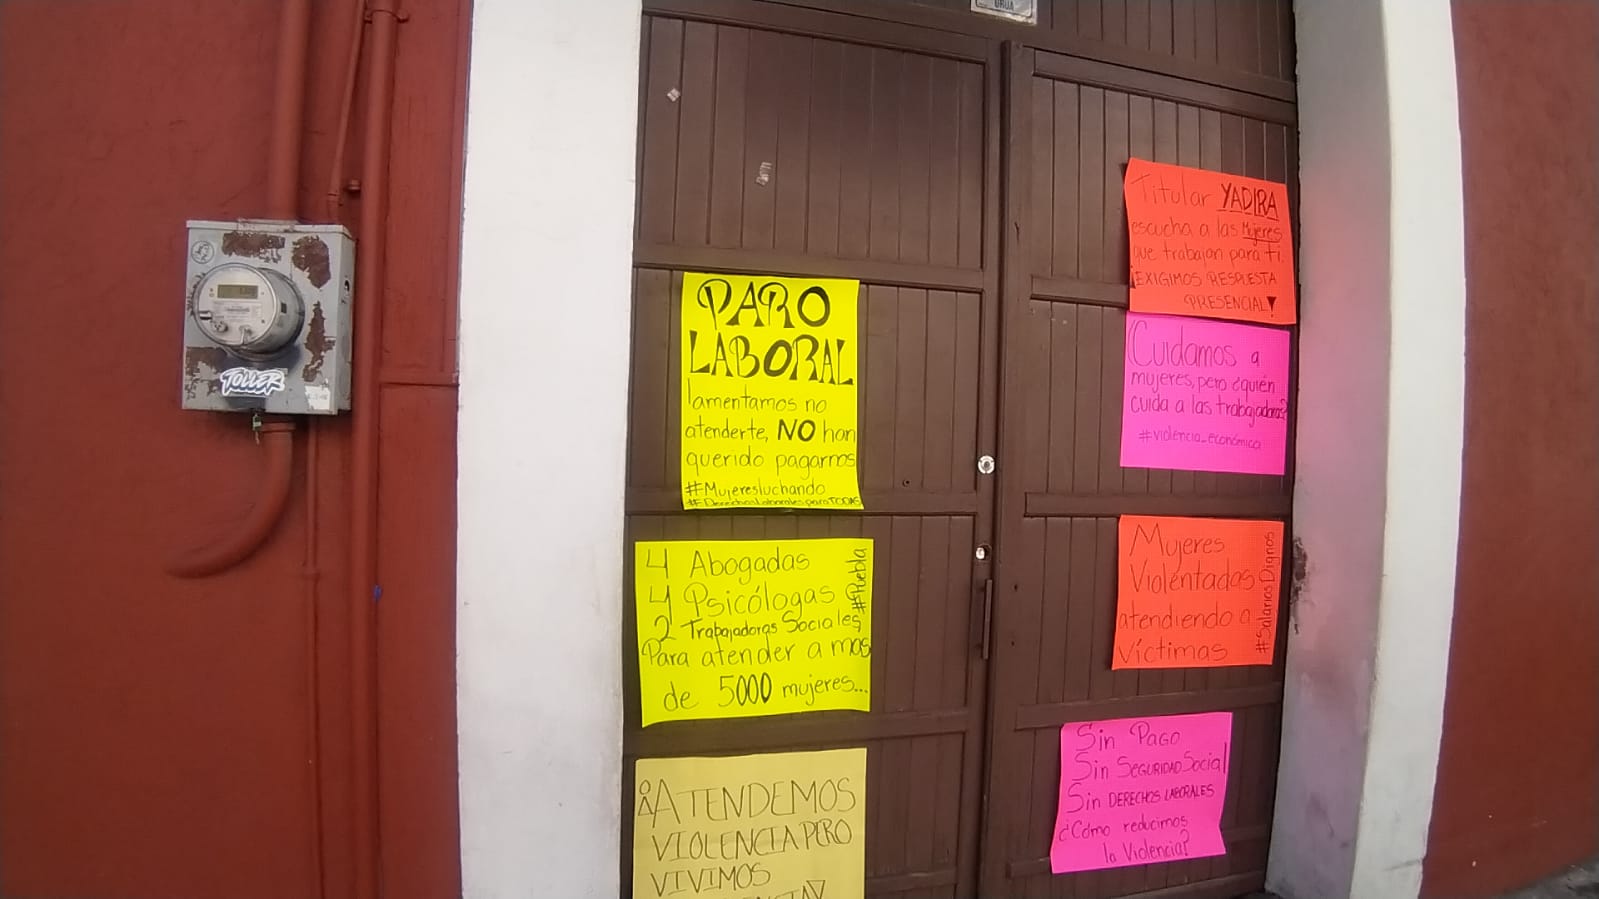 PARO
LABORAL
lamentamos no
atenderte, NO han
querido pagarnos
#Mujeresluchando
#DerechosLaboralesparaTODAS
4 Abogadas
4 Psicólogas
2 Trabajadoras Sociales
Para atender a mas
de 5000 mujeres...
#Puebla
¡ATENDEMOS
VIOLENCIA PERO
VIVIMOS
Titular YADIRA
escucha a las Mujeres
que trabajan para ti.
¡EXIGIMOS RESPUESTA
PRESENCIAL!
Cuidamos a
mujeres, pero ¿quién
cuida a las trabajadoras?
#violencia_económica
Mujeres
Violentadas
atendiendo a
víctimas
#SalariosDignos
Sin PAGO
Sin SEGURIDAD Social
Sin DERECHOS LABORALES
¿Cómo reducimos
la Violencia?
TOLLER